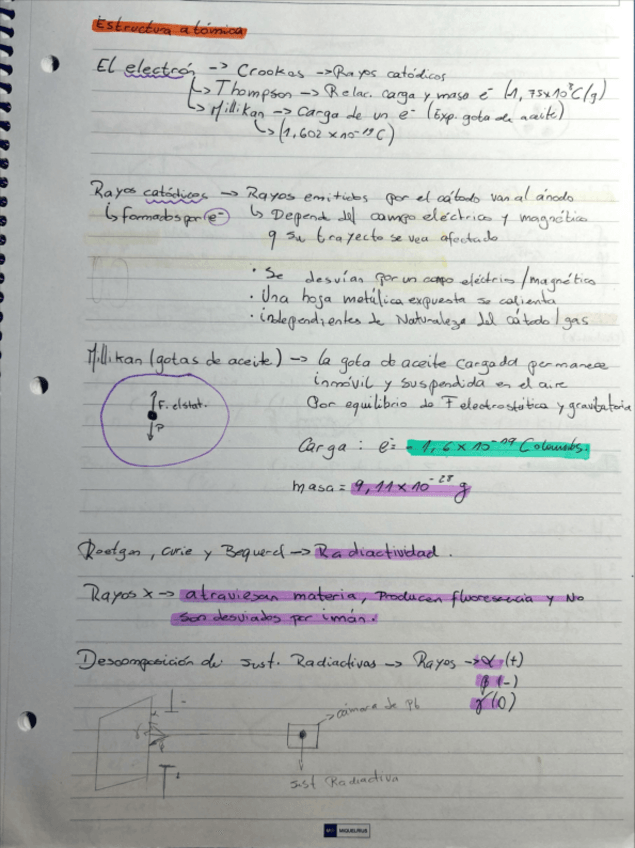 Estructura atómica
El electrón -> Crookes -> Rayos catódicos
↳ Thompson -> Relac. carga y masa e⁻ (1,75x10⁸ C/g)
↳ Millikan -> Carga de un e⁻ (Exp. gota de aceite)
↳ (1,602 x 10⁻¹⁹ C)
Rayos catódicos -> Rayos emitidos por el cátodo van al ánodo
↳ formados por e⁻ ↳ Depende del campo eléctrico y magnético
q su trayecto se vea afectado
· Se desvían por un campo eléctrico/magnético
· Una hoja metálica expuesta se calienta
· independientes de Naturaleza del cátodo/gas
Millikan (gotas de aceite) -> la gota de aceite cargada permanece
inmóvil y suspendida en el aire
F. elstat. Por equilibrio de F electrostática y gravitatoria
P
Carga : e⁻ = - 1,6 x 10⁻¹⁹ Coulombs.
masa = 9,11x10⁻²⁸ g
Roetgen, Curie y Bequerel -> Radiactividad.
Rayos X -> atraviesan materia, Producen fluorescencia y No
son desviados por imán.
Descomposición de sust. Radiactivas -> Rayos -> α (+)
β (-)
γ (0)
cámara de Pb
sust Radiactiva
MIGUELRIUS